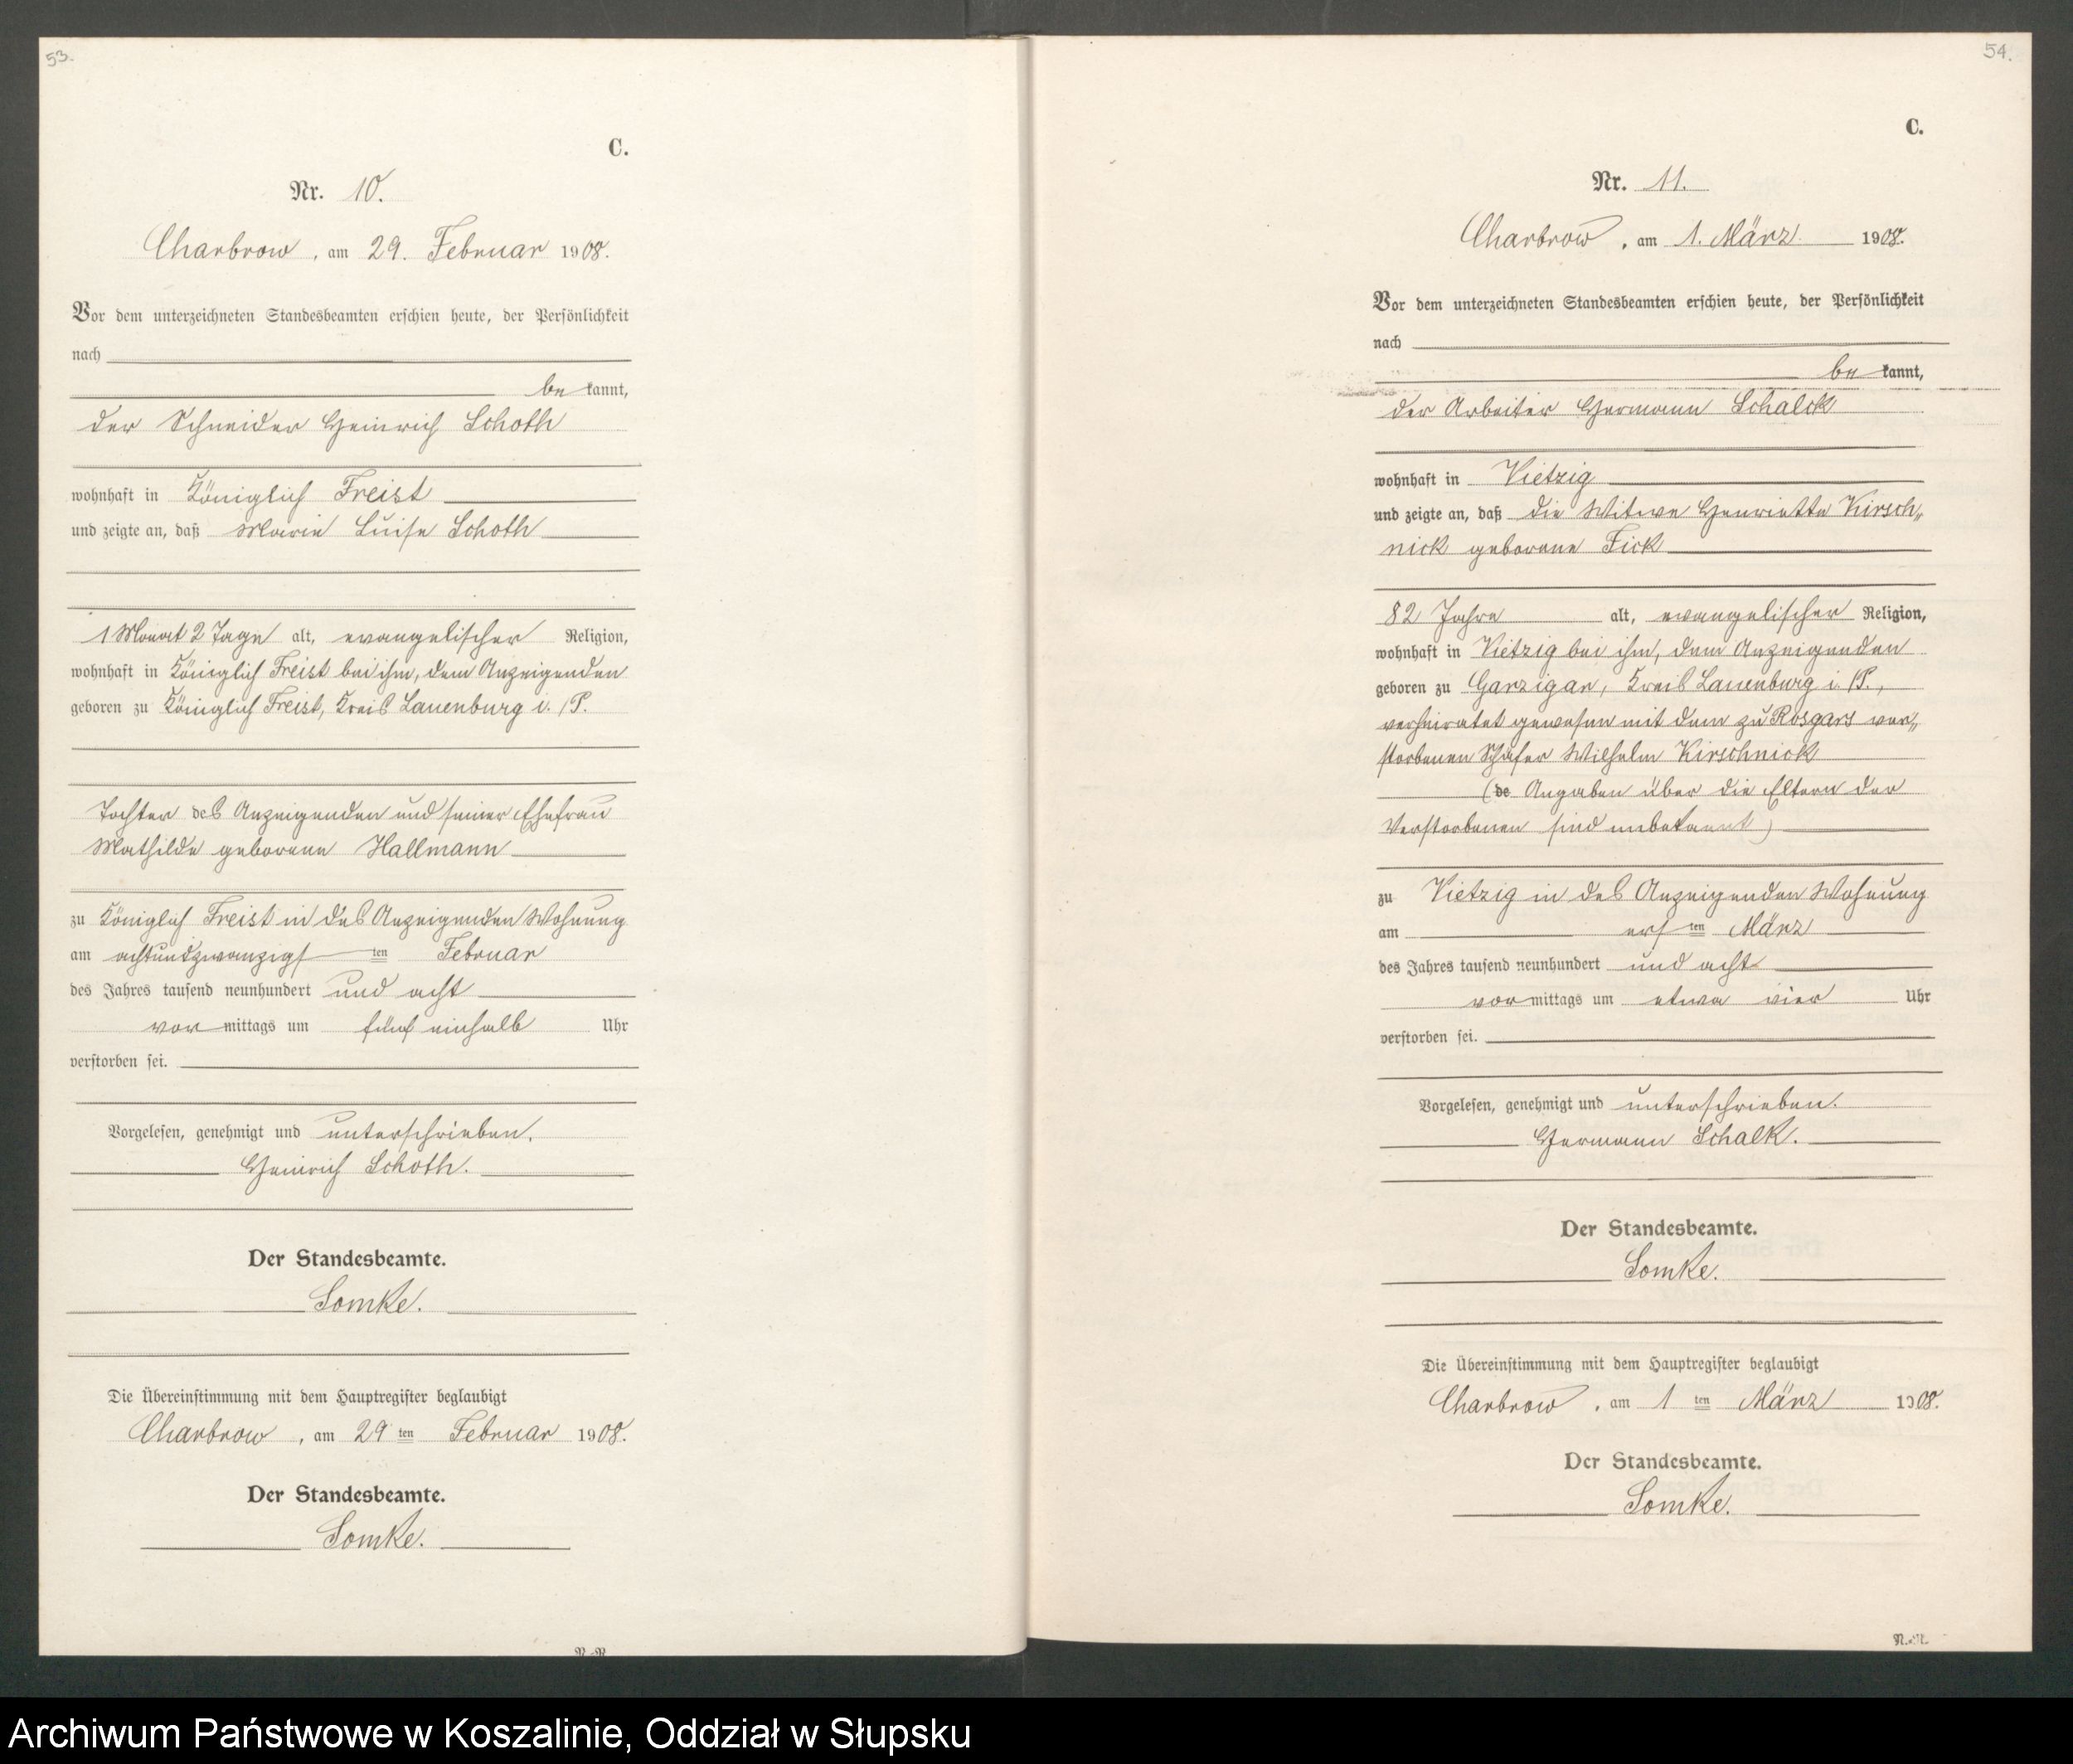 53.
C.
Nr. 10.
Charbrow, am 29. Februar 1908.
Vor dem unterzeichneten Standesbeamten erschien heute, der Persönlichkeit
nach
be kannt,
der Schneider Heinrich Schoth
wohnhaft in Königlich Freist
und zeigte an, daß Marie Luise Schoth
1 Monat 2 Tage alt, evangelischer Religion,
wohnhaft in Königlich Freist bei ihm, dem Anzeigenden
geboren zu Königlich Freist, Kreis Lauenburg i. /P.
Tochter des Anzeigenden und seiner Ehefrau
Mathilde geborene Hallmann
zu Königlich Freist in des Anzeigenden Wohnung
am achtundzwanzigs ten Februar
des Jahres tausend neunhundert und acht
vor mittags um fünf einhalb Uhr
verstorben sei.
Vorgelesen, genehmigt und unterschrieben.
Heinrich Schoth.
Der Standesbeamte.
Somke.
Die Übereinstimmung mit dem Hauptregister beglaubigt
Charbrow, am 29 ten Februar 1908.
Der Standesbeamte.
Somke.
N.-N.
54.
C.
Nr. 11.
Charbrow, am 1. März 1908.
Vor dem unterzeichneten Standesbeamten erschien heute, der Persönlichkeit
nach
be kannt,
der Arbeiter Hermann Schalck
wohnhaft in Vietzig
und zeigte an, daß die Witwe Henriette Kirsch„
nick geborene Fick
82 Jahre alt, evangelischer Religion,
wohnhaft in Vietzig bei ihm, dem Anzeigenden
geboren zu Garzigar, Kreis Lauenburg i. /P.,
verheiratet gewesen mit dem zu Rosgars ver„
storbenen Schäfer Wilhelm Kirschnick
(de Angaben über die Eltern der
Verstorbenen sind unbekannt)
zu Vietzig in des Anzeigenden Wohnung
am ers ten März
des Jahres tausend neunhundert und acht
vor mittags um etwa vier Uhr
verstorben sei.
Vorgelesen, genehmigt und unterschrieben.
Hermann Schalk.
Der Standesbeamte.
Somke.
Die Übereinstimmung mit dem Hauptregister beglaubigt
Charbrow, am 1 ten März 1908.
Der Standesbeamte.
Somke.
N.-N.
Archiwum Państwowe w Koszalinie, Oddział w Słupsku